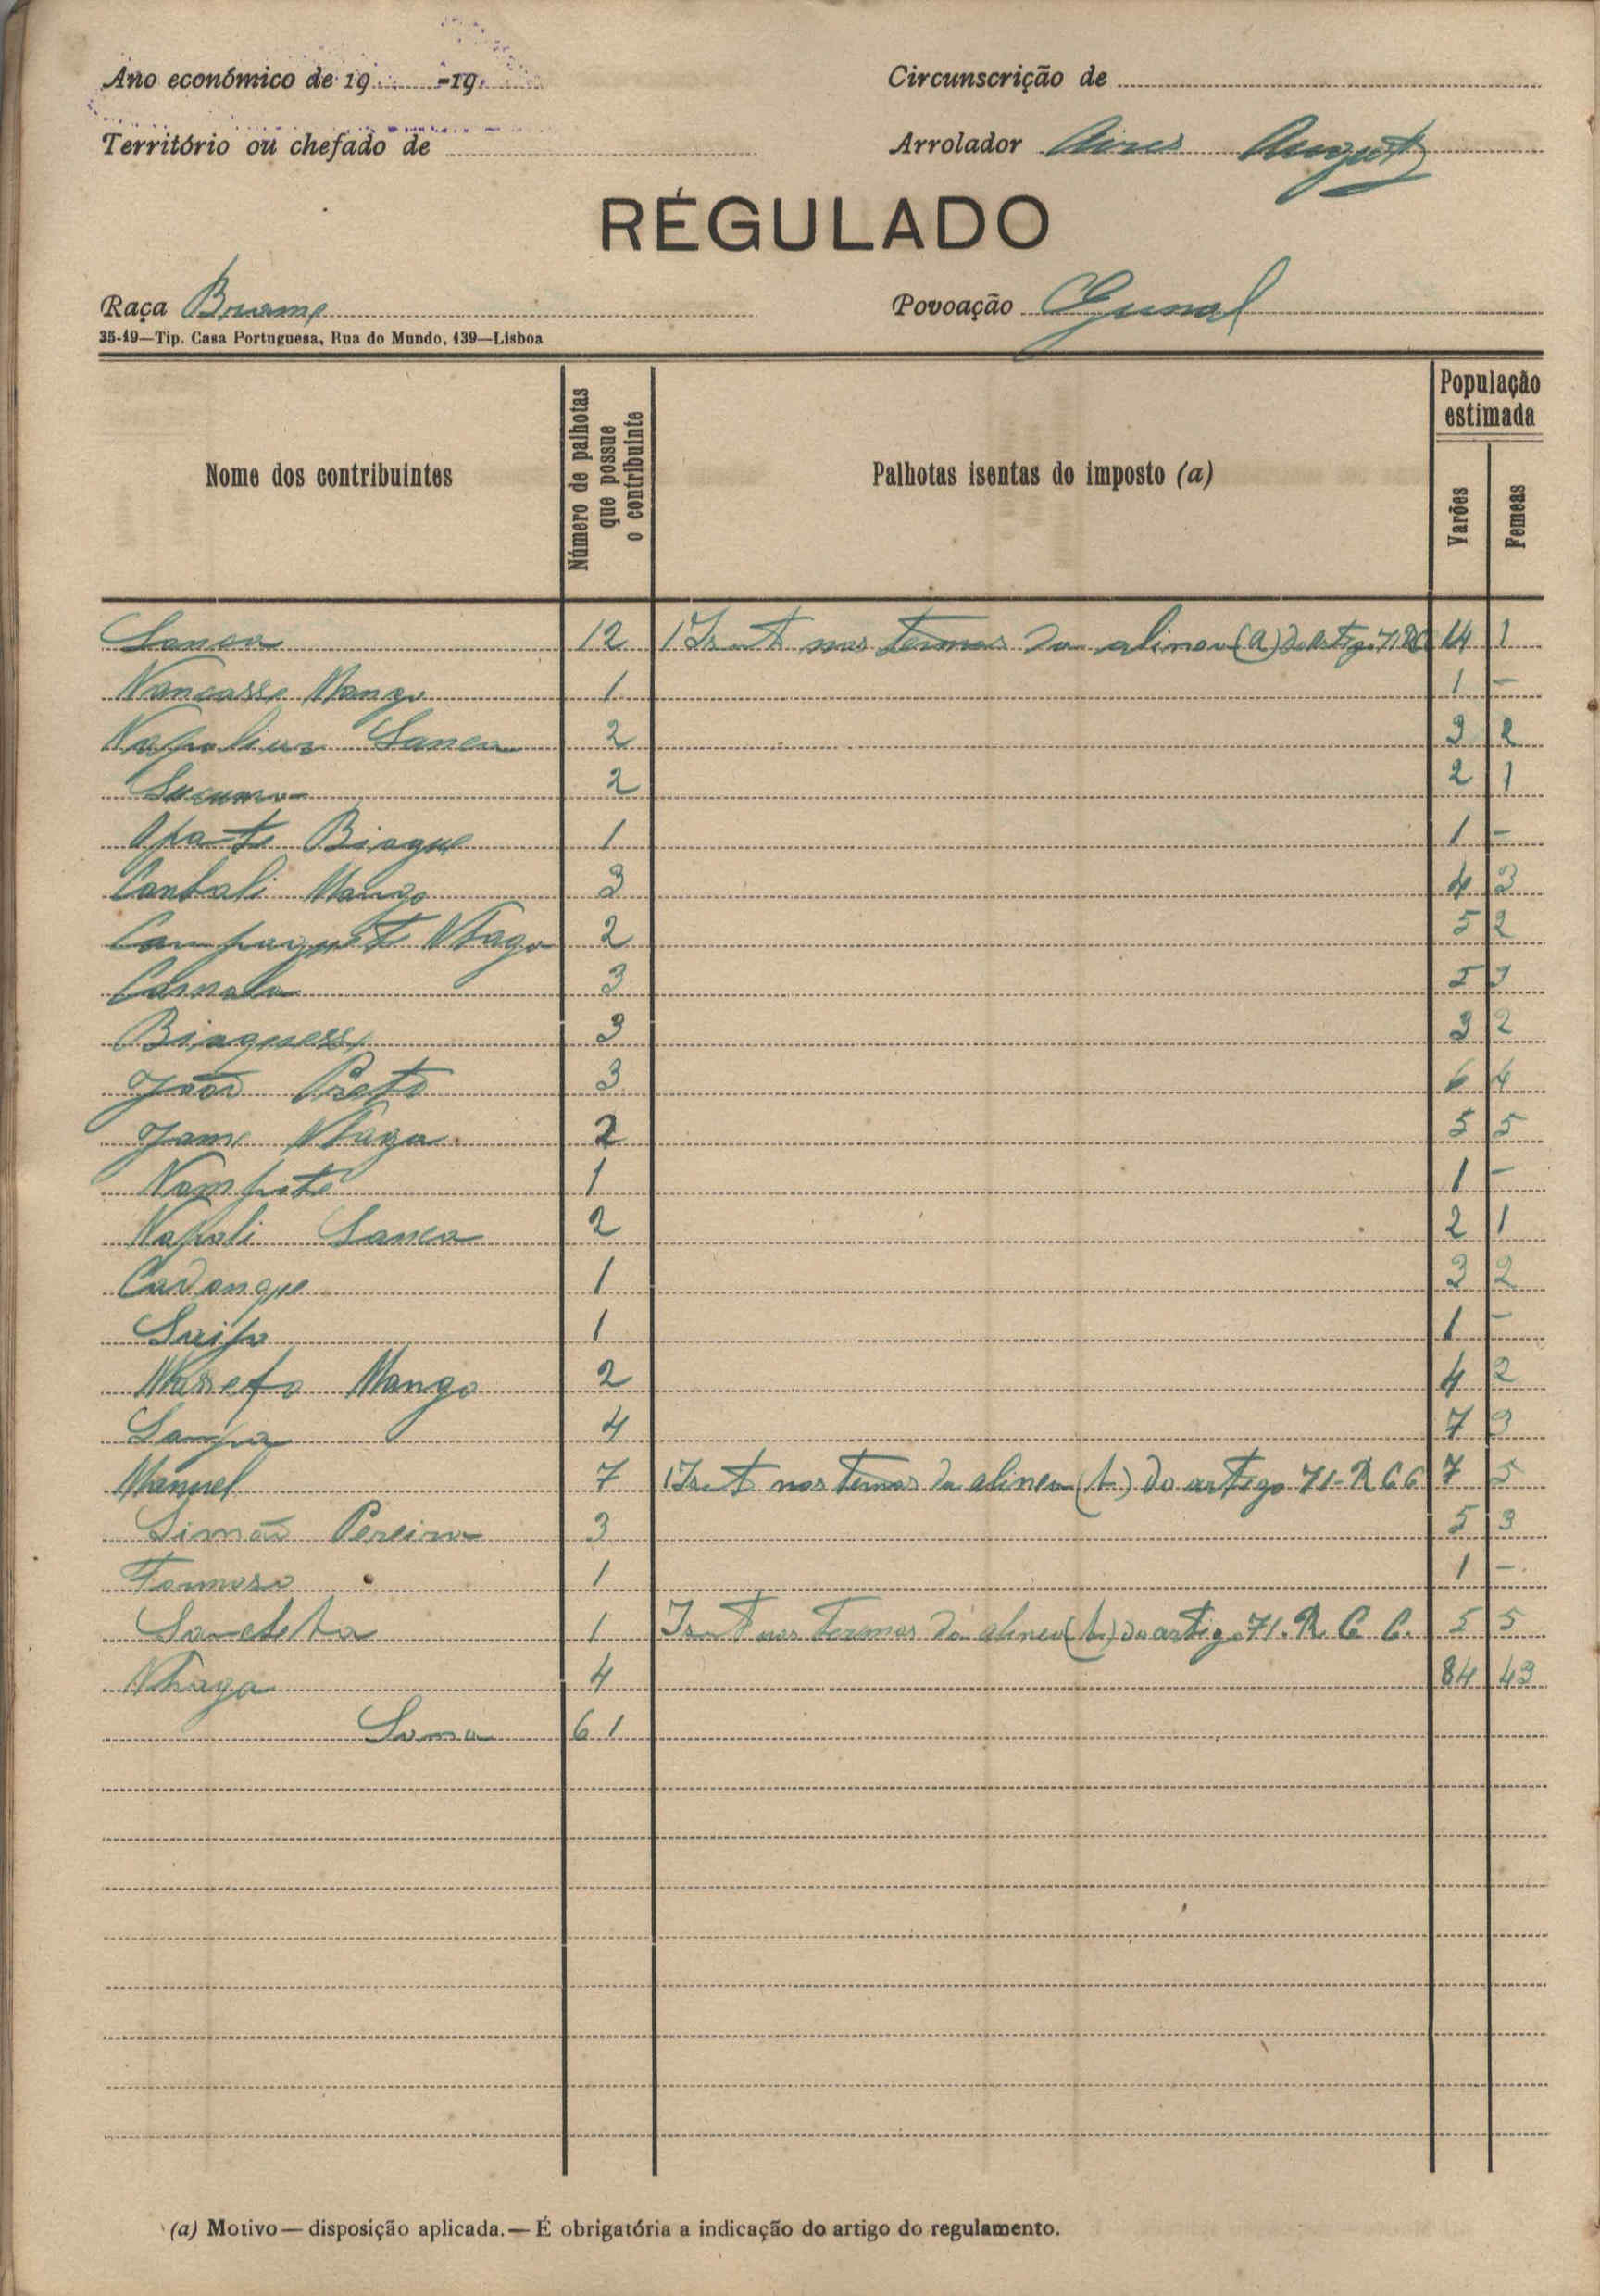 Ano económico de 19 -19
Circunscrição de
Território ou chefado de
Arrolador Aires Augusto
REGULADO
Raça Brame
Povoação Gunal
35-19—Tip. Casa Portuguesa, Rua do Mundo, 139—Lisboa
Nome dos contribuintes
Número de palhotas que possue o contribuinte
Palhotas isentas do imposto (a)
População estimada
Varões
Femeas
Sanca 12 1 nos termos da alinea (a) do artigo 71 14 1
Nancasse Mango 1 1 -
Sanca 2 3 2
2 2 1
Biague 1 1 -
Cantali Mango 3 4 3
Nhaga 2 5 2
3 5 3
Biaguesse 3 3 2
João Preto 3 6 4
Jame Nhaga 2 5 5
Nampite 1 1 -
Napoli Sanca 2 2 1
Cadongue 1 3 2
1 1 -
Mango 2 4 2
4 7 3
Manuel 7 1 nos termos da alinea (b) do artigo 71-R C C 7 5
Simão Pereira 3 5 3
Formoso 1 1 -
1 nos termos da alinea (b) do artigo 71. R. C. C. 5 5
Nhaga 4 84 43
Soma 61
(a) Motivo — disposição aplicada. — É obrigatória a indicação do artigo do regulamento.